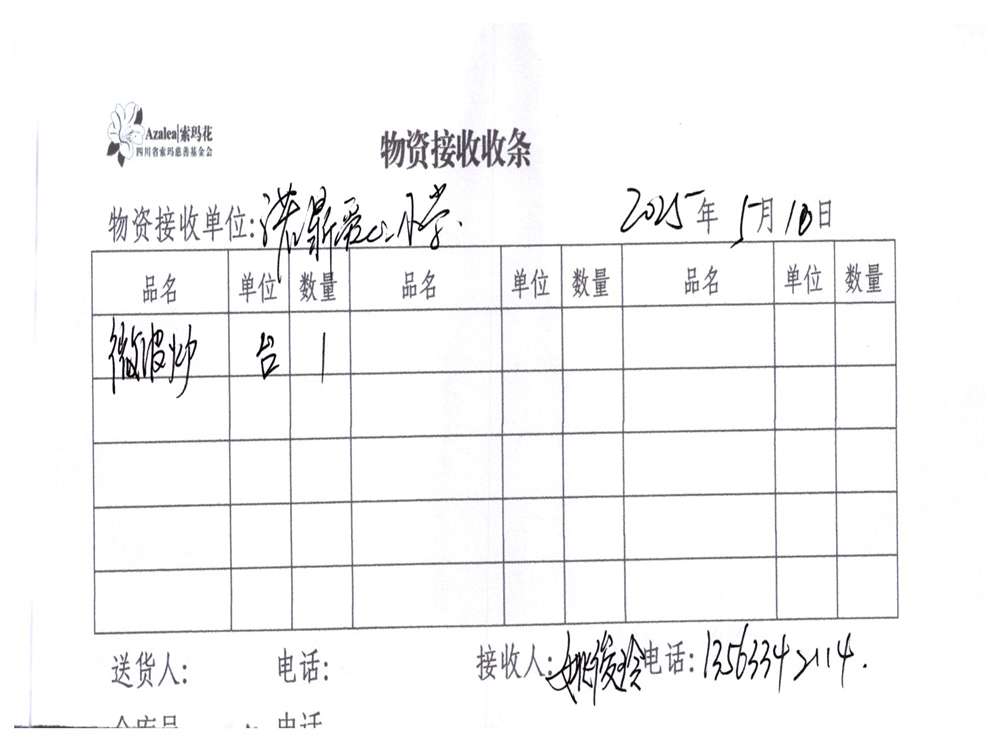 Azalea|索玛花
四川省索玛慈善基金会
物资接收收条
物资接收单位:洪鼎爱心小学. 2025年 5月10日
品名 单位 数量 品名 单位 数量 品名 单位 数量
微波炉 台 1
送货人: 电话: 接收人:姚俊玲 电话:13563342114.